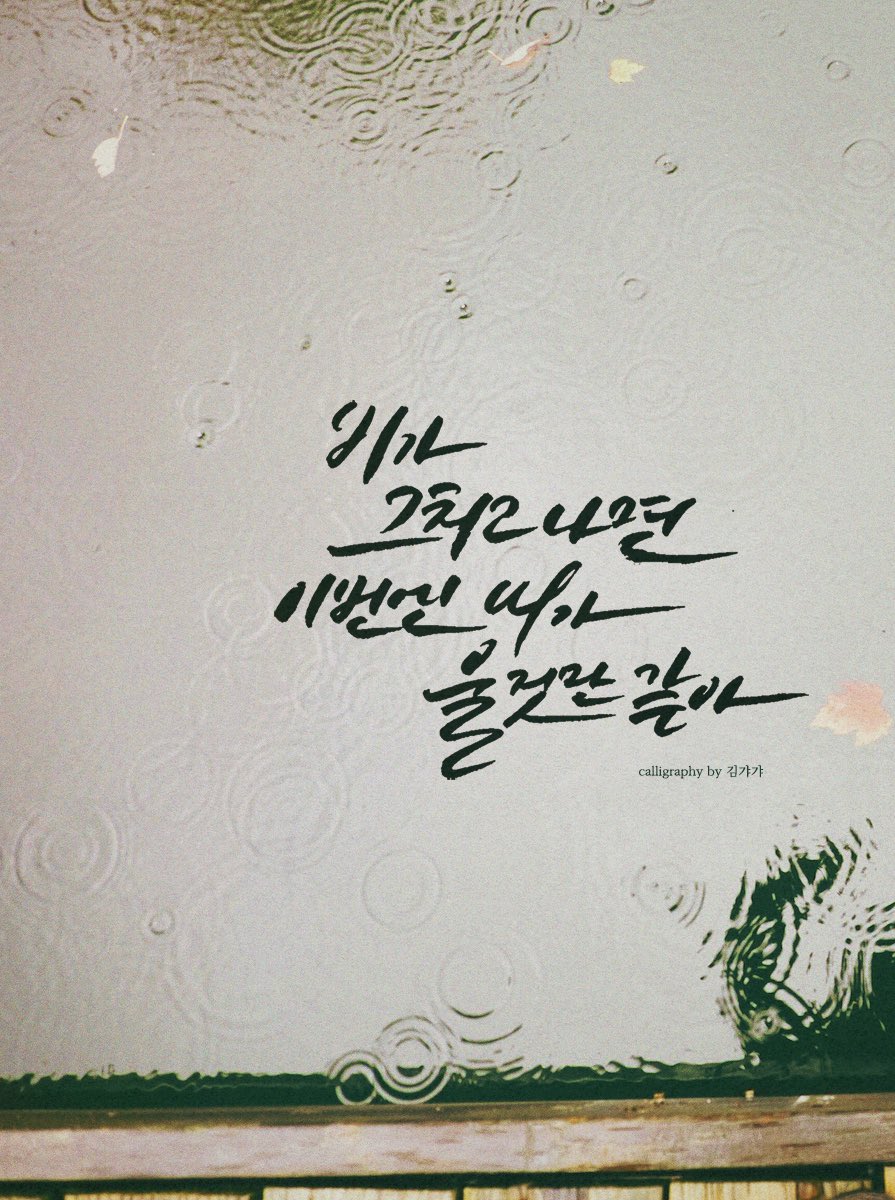 비가
그치고 나면
이번엔 내가
울 것만 같아
calligraphy by 김갸갸